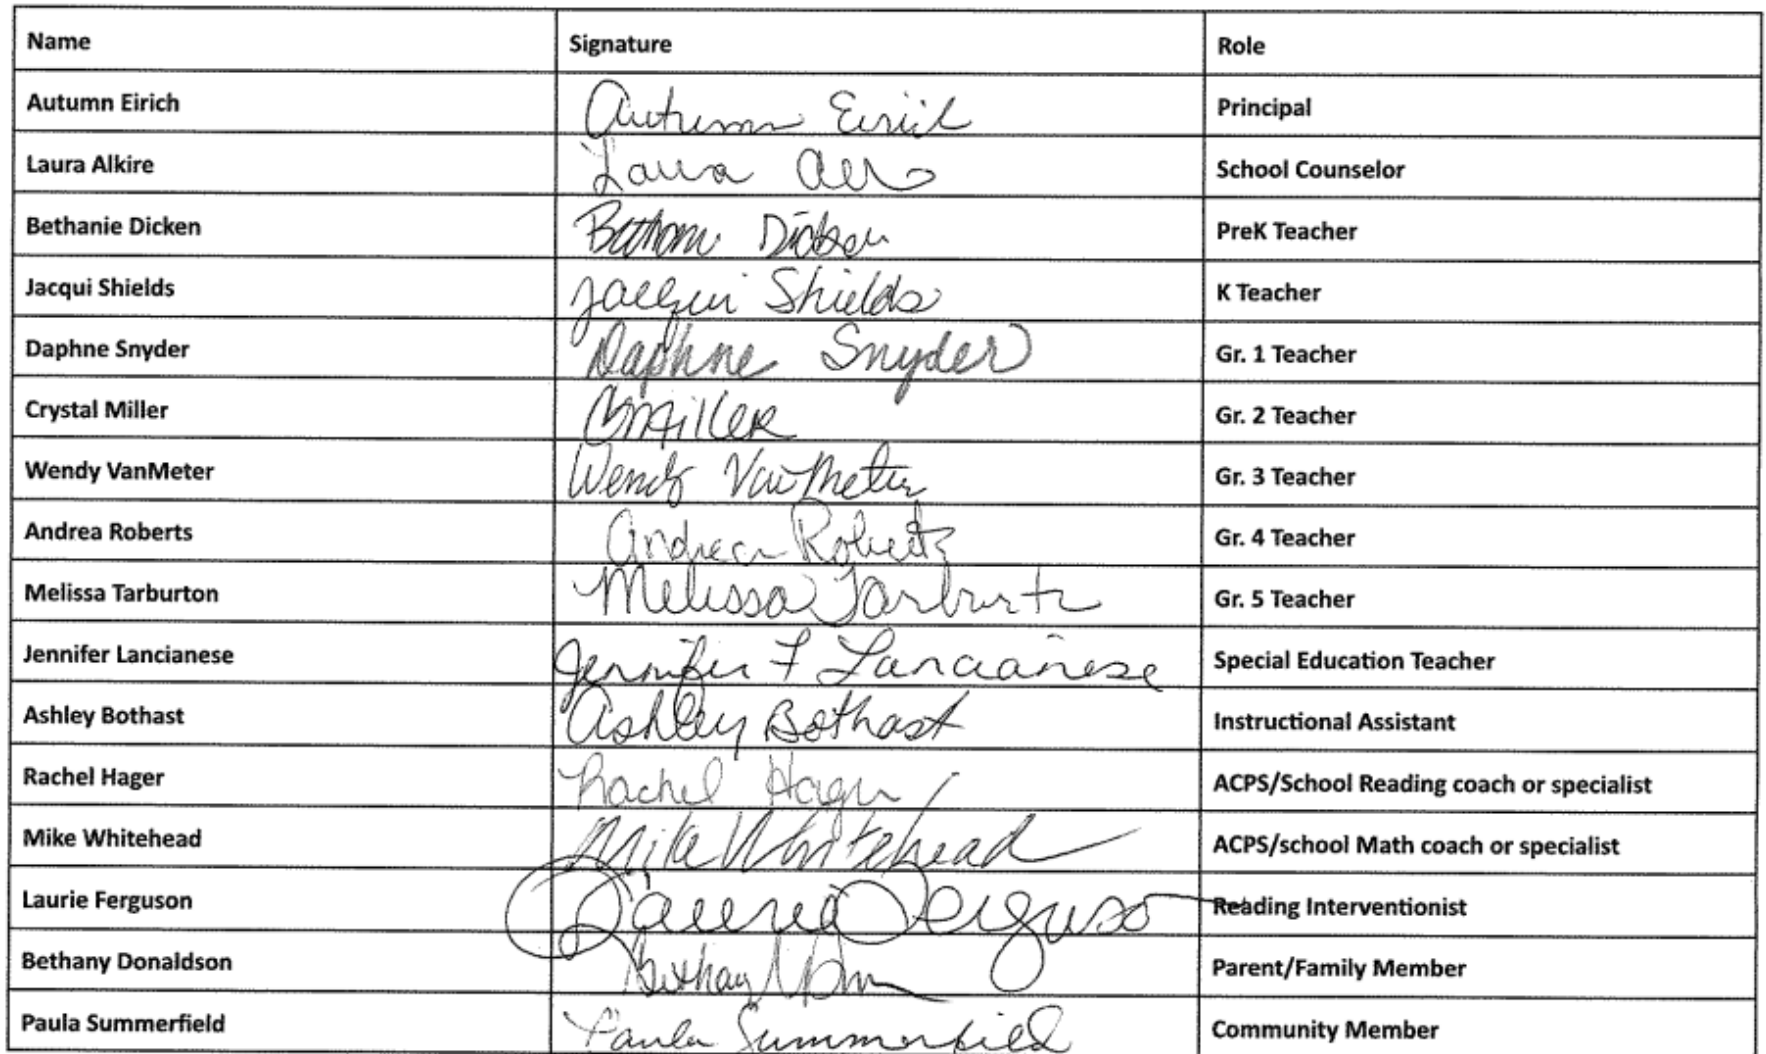 Name Signature Role
Autumn Eirich Autumn Eirich Principal
Laura Alkire Laura School Counselor
Bethanie Dicken Bethanie Dicken PreK Teacher
Jacqui Shields Jacqui Shields K Teacher
Daphne Snyder Daphne Snyder Gr. 1 Teacher
Crystal Miller CMiller Gr. 2 Teacher
Wendy VanMeter Wendy VanMeter Gr. 3 Teacher
Andrea Roberts Andrea Roberts Gr. 4 Teacher
Melissa Tarburton Melissa Tarburton Gr. 5 Teacher
Jennifer Lancianese Jennifer F Lancianese Special Education Teacher
Ashley Bothast Ashley Bothast Instructional Assistant
Rachel Hager Rachel Hager ACPS/School Reading coach or specialist
Mike Whitehead Mike Whitehead ACPS/school Math coach or specialist
Laurie Ferguson Laurie Ferguson Reading Interventionist
Bethany Donaldson Bethany Parent/Family Member
Paula Summerfield Paula Summerfield Community Member